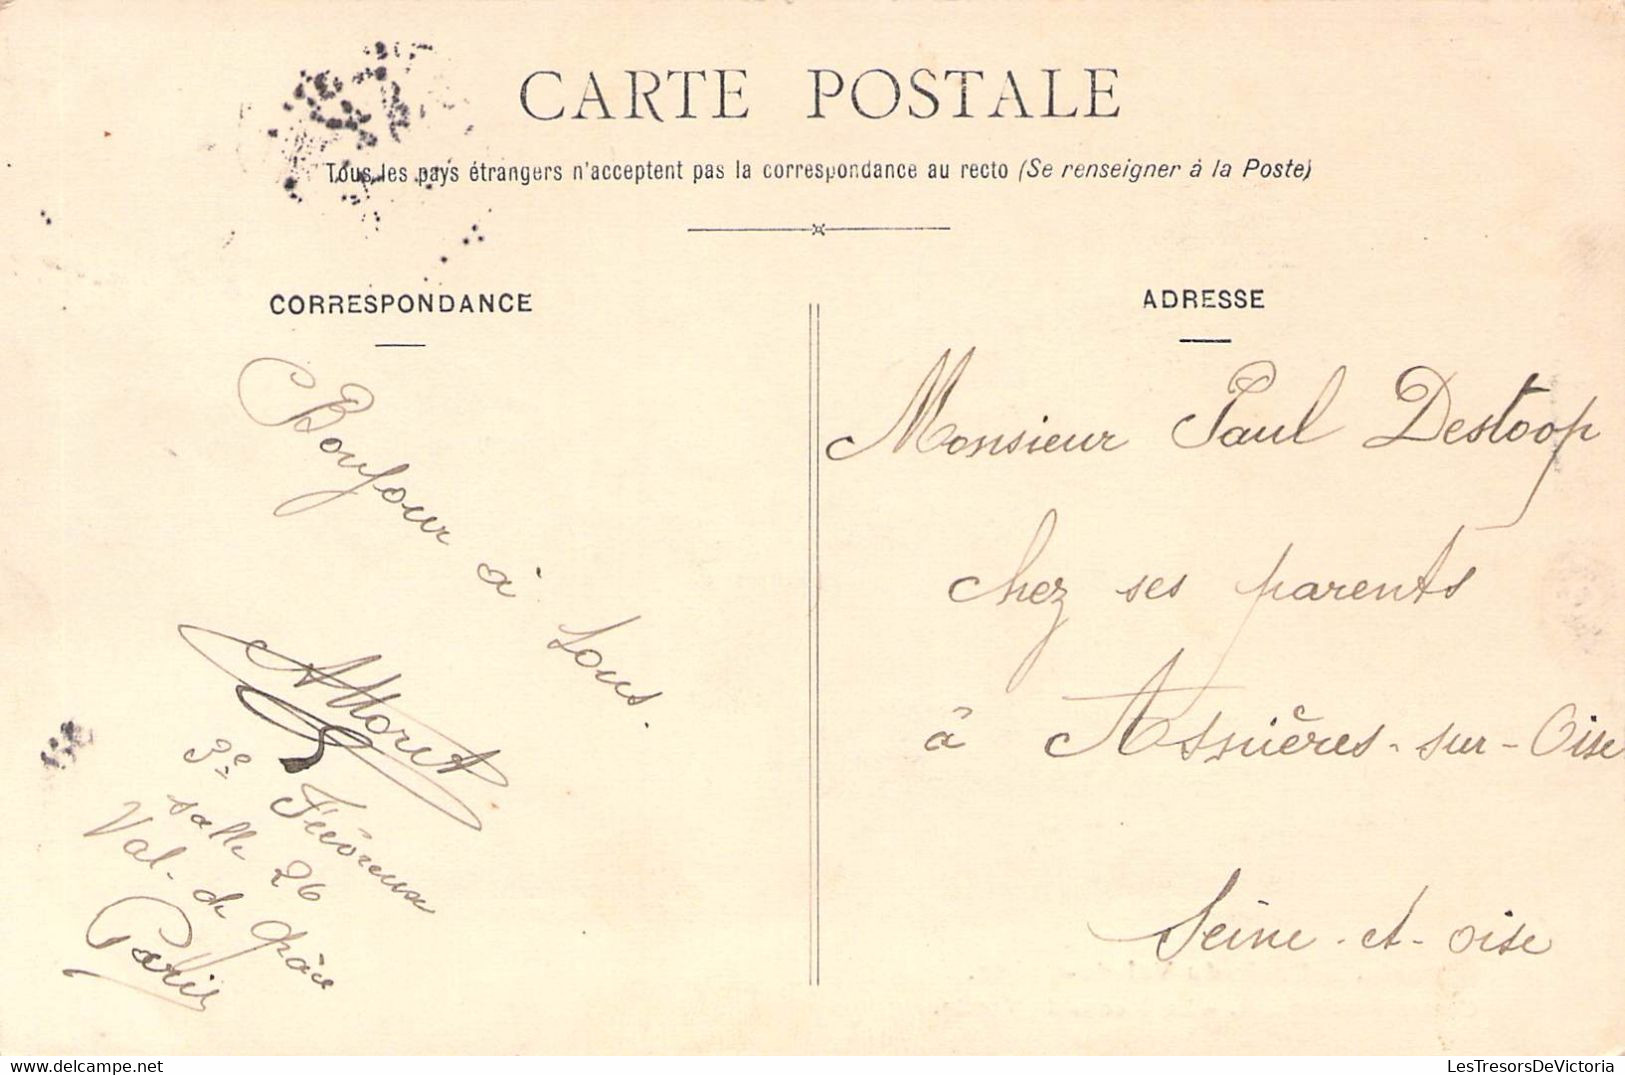 CARTE POSTALE
Tous les pays étrangers n'acceptent pas la correspondance au recto (Se renseigner à la Poste)
CORRESPONDANCE
Bonjour à tous.
AMoret
3e Fiévreux
salle 26
Val-de Grâce
Paris
ADRESSE
Monsieur Paul Destoop
chez ses parents
à Asnières-sur-Oise
Seine-et-oise
LesTresorsDeVictoria